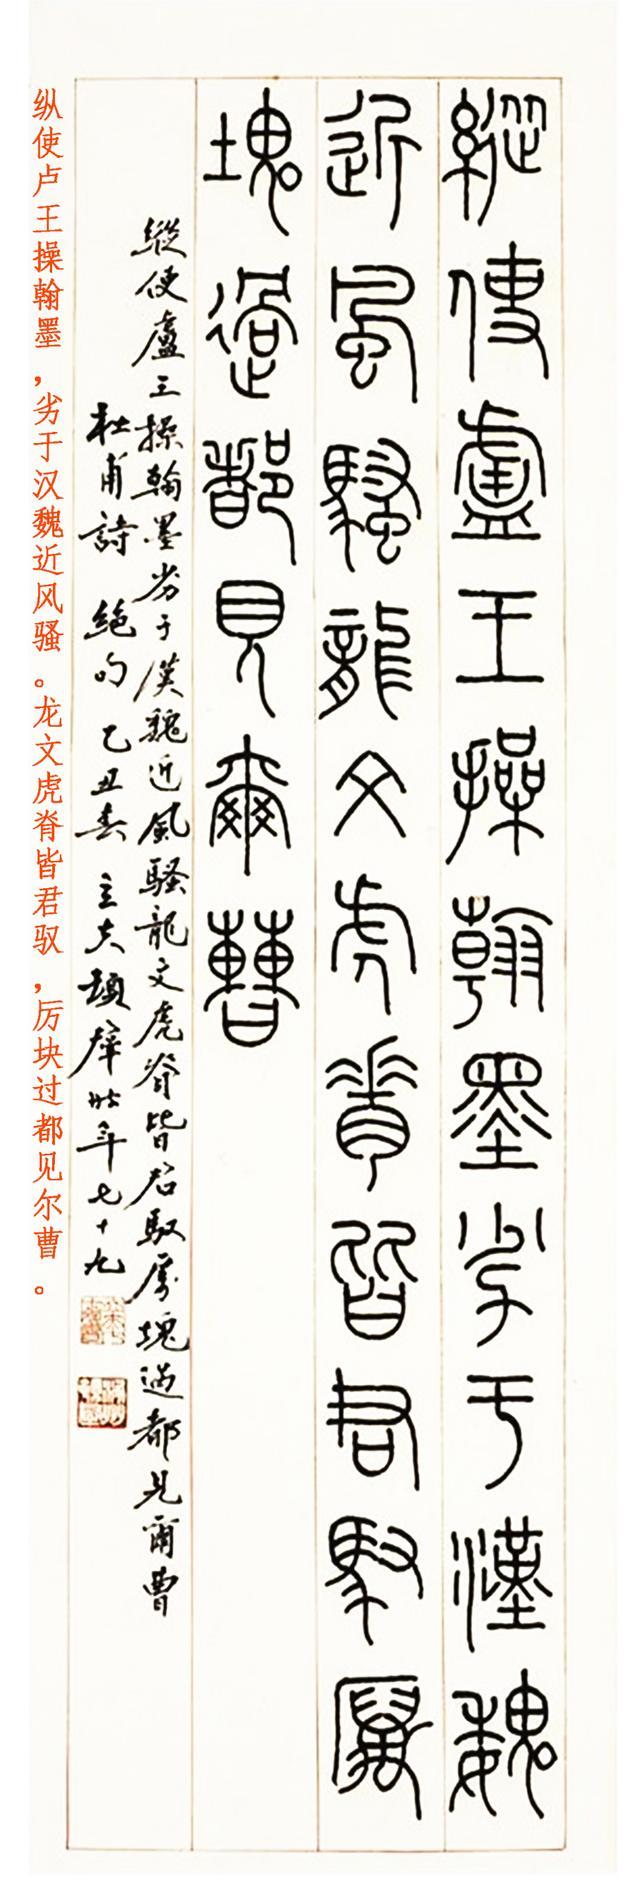 縱使盧王操翰墨劣于漢魏
近風騷龍文虎脊皆君馭厲
塊過都見爾曹
縱使盧王操翰墨劣于漢魏近風騷龍文虎脊皆君馭厲塊過都見爾曹
杜甫詩 絕句 乙丑春 年七十九
纵使卢王操翰墨，劣于汉魏近风骚。龙文虎脊皆君驭，厉块过都见尔曹。